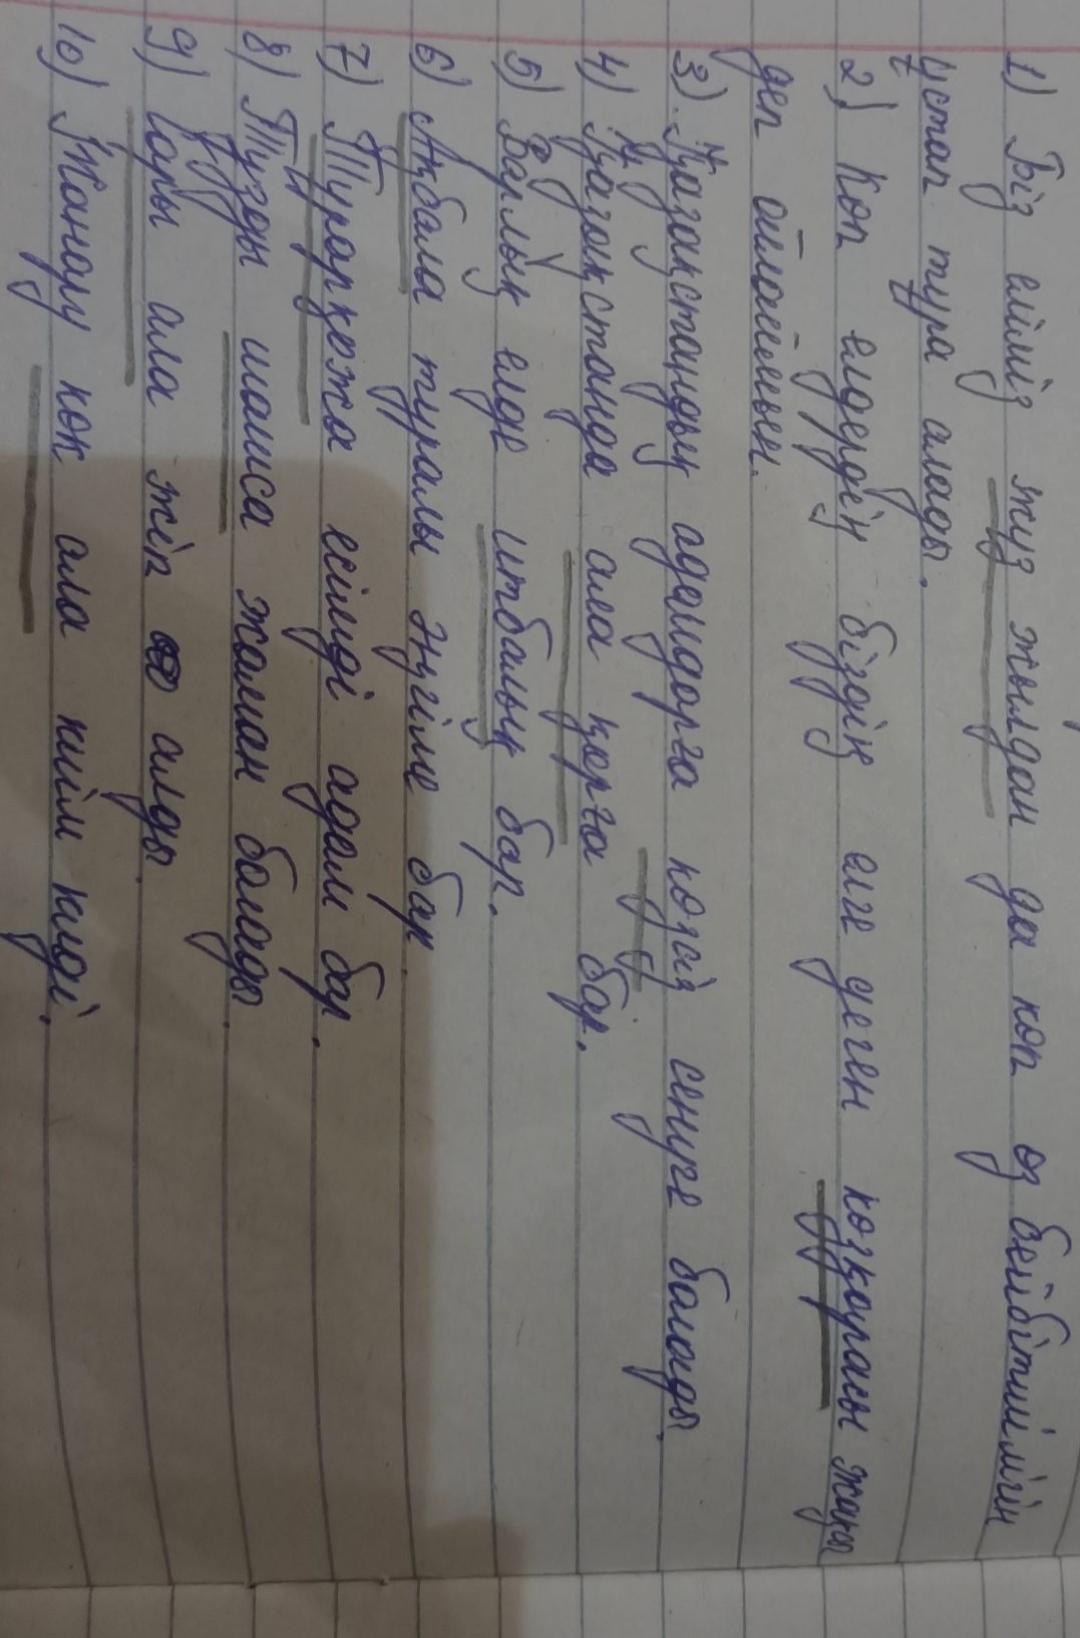 1) Біз еліміз жүз жылдан да көп өз бейбітшілігін
ұстап тұра алады.
2) Көп елдердің біздің елге деген көзқарасы жақы
деп ойлаймын.
3) Қазақстандық адамдарға көзсіз сенуге болады.
4) Қазақстанда ала қарға бар.
5) Барлық елде итбалық бар.
6) Ақбала туралы әңгіме бар.
7) Тұрарқожа есімді адам бар.
8) Тұзды ішсе жаман болады.
9) Сары ала жіп алды.
10) Жаңалу көк ала киім киді.